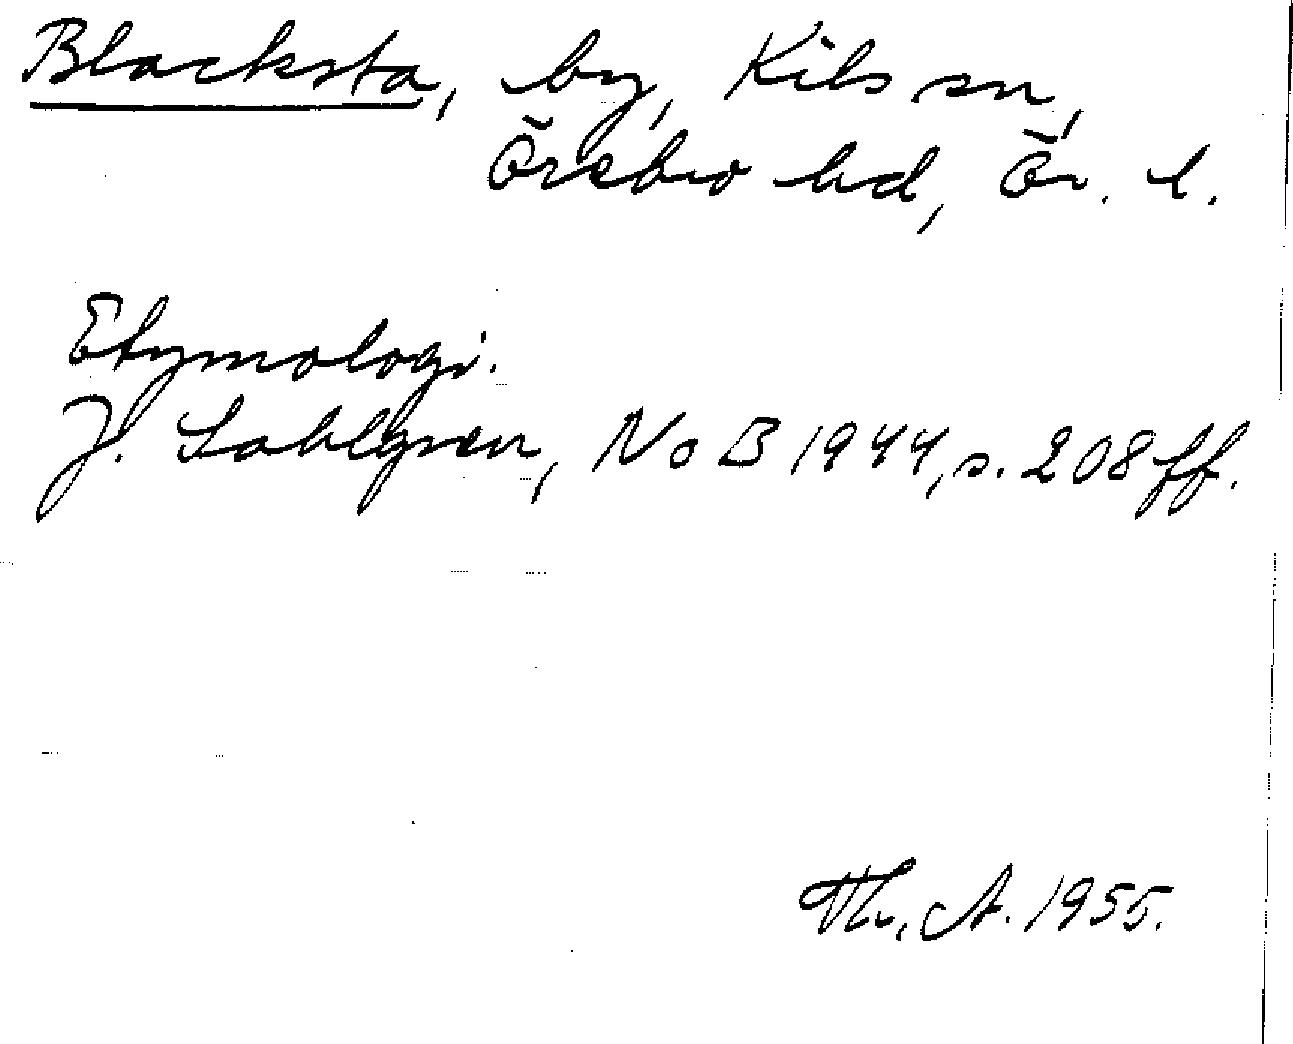 Blacksta, by, Kils sn,
Örebro hd, Ör. l.
Etymologi.
J. Sahlgren, NoB 1944, s. 208 ff.
Th. A. 1955.